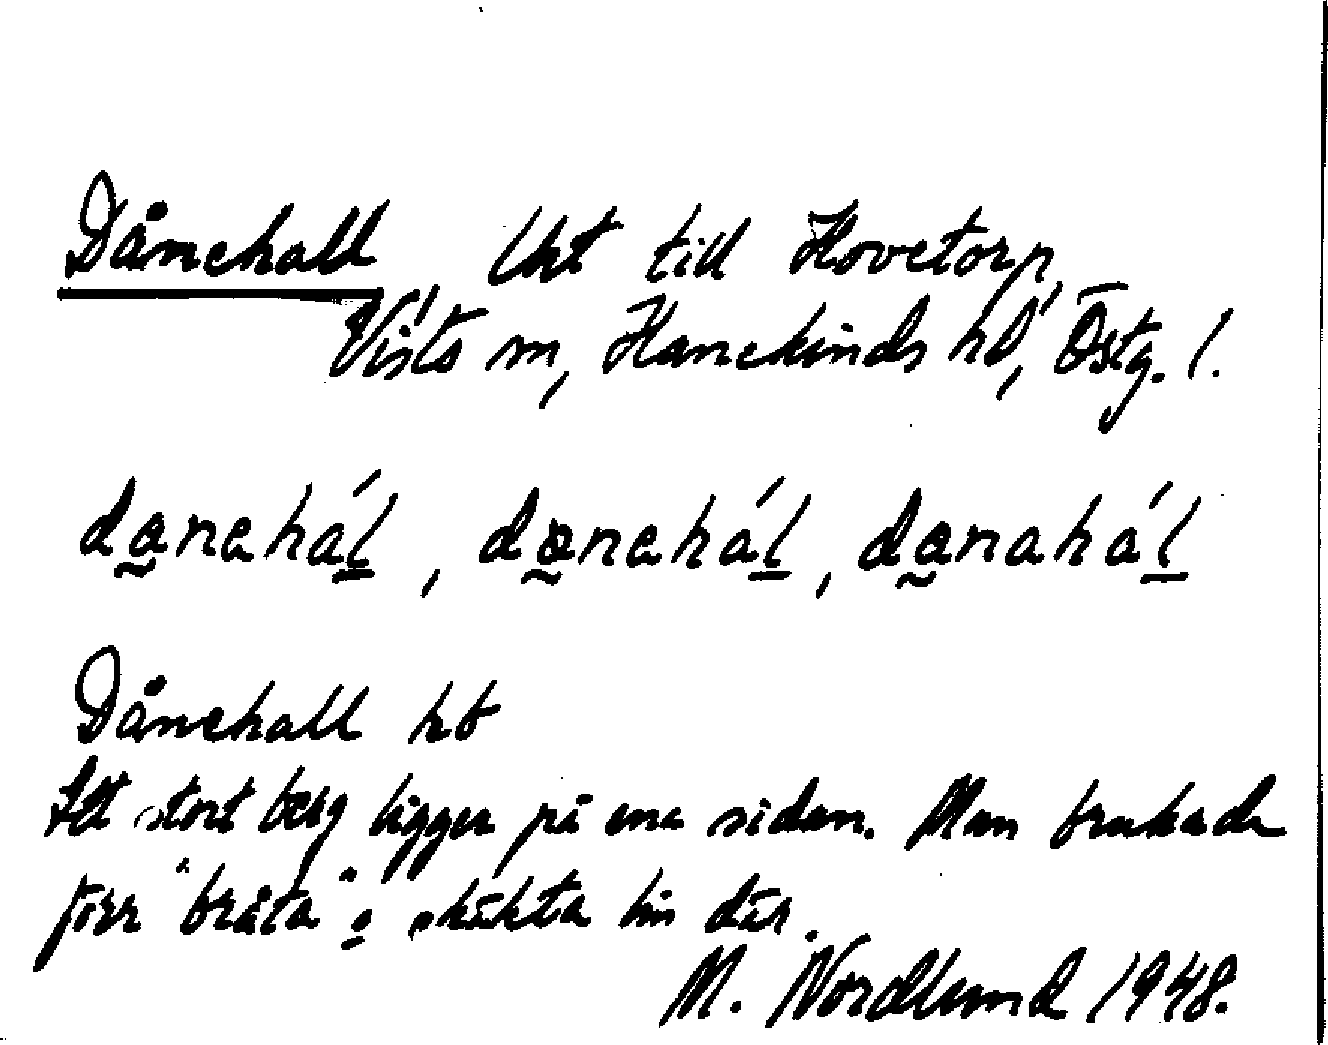 Dånehall Uht till Hovetorp,
Vists sn, Hanekinds hd, Östg. l.
dǫnehál, dǫnehál, dǫnahál
Dånehall hb
Ett stort berg ligger på ena sidan. Man brukade
förr "bråta" o skäkta lin där.
M. Nordlund 1948.